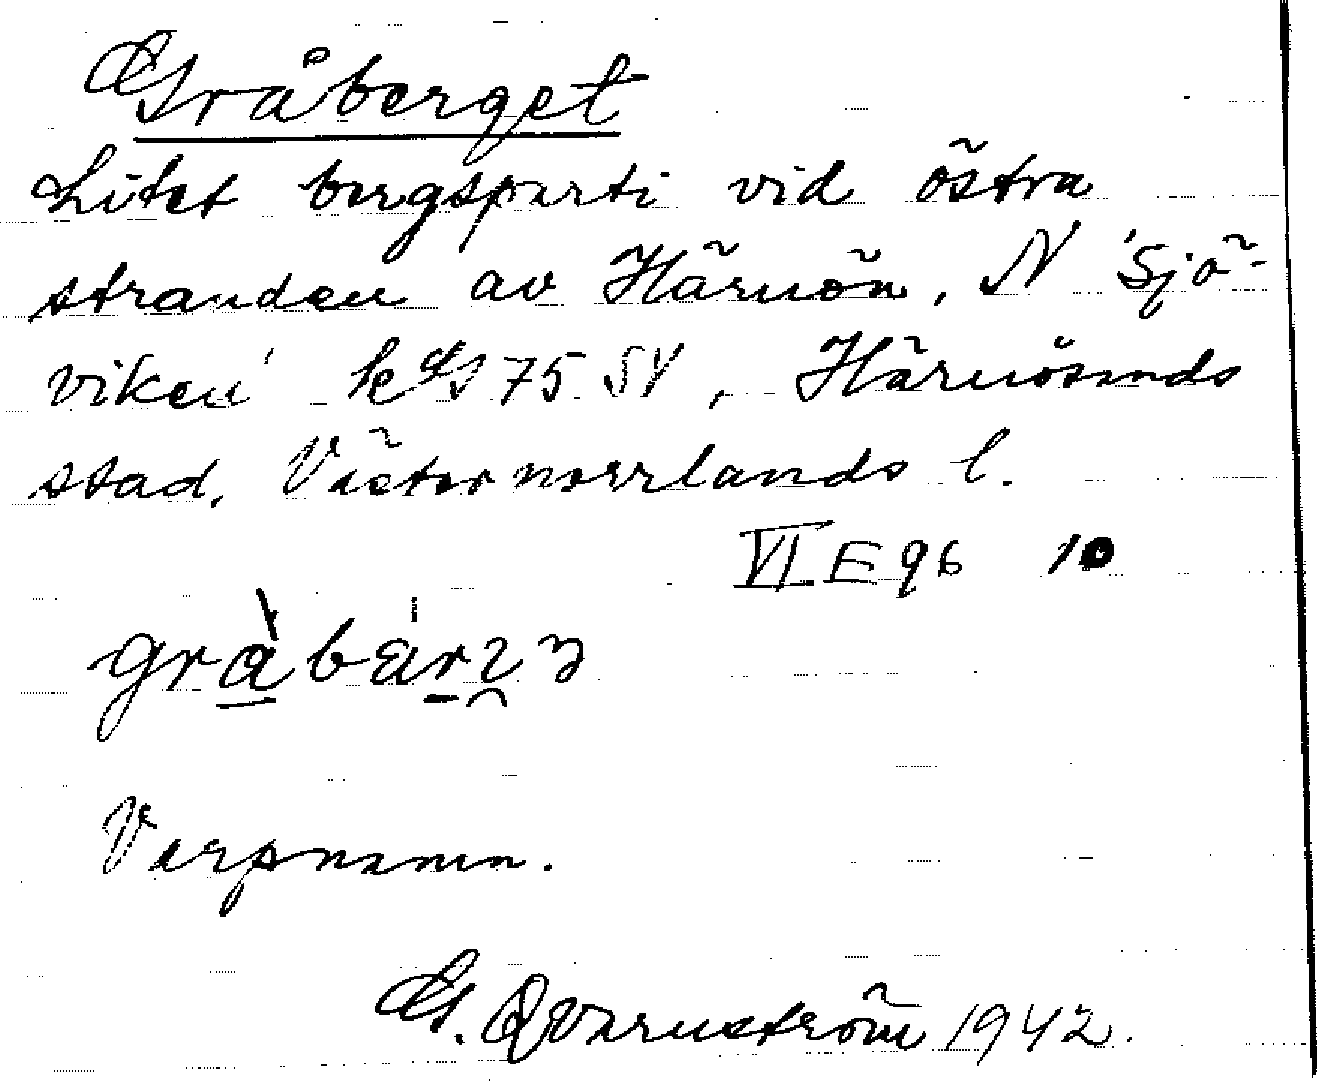 Gråberget
Litet bergsparti vid östra
stranden av Härnön, N 'Sjö-
viken' kbl 75 SV, Härnösands
stad. Västernorrlands l.
VI E 96 10
Varpnamn.
G. Qvarnström 1942.